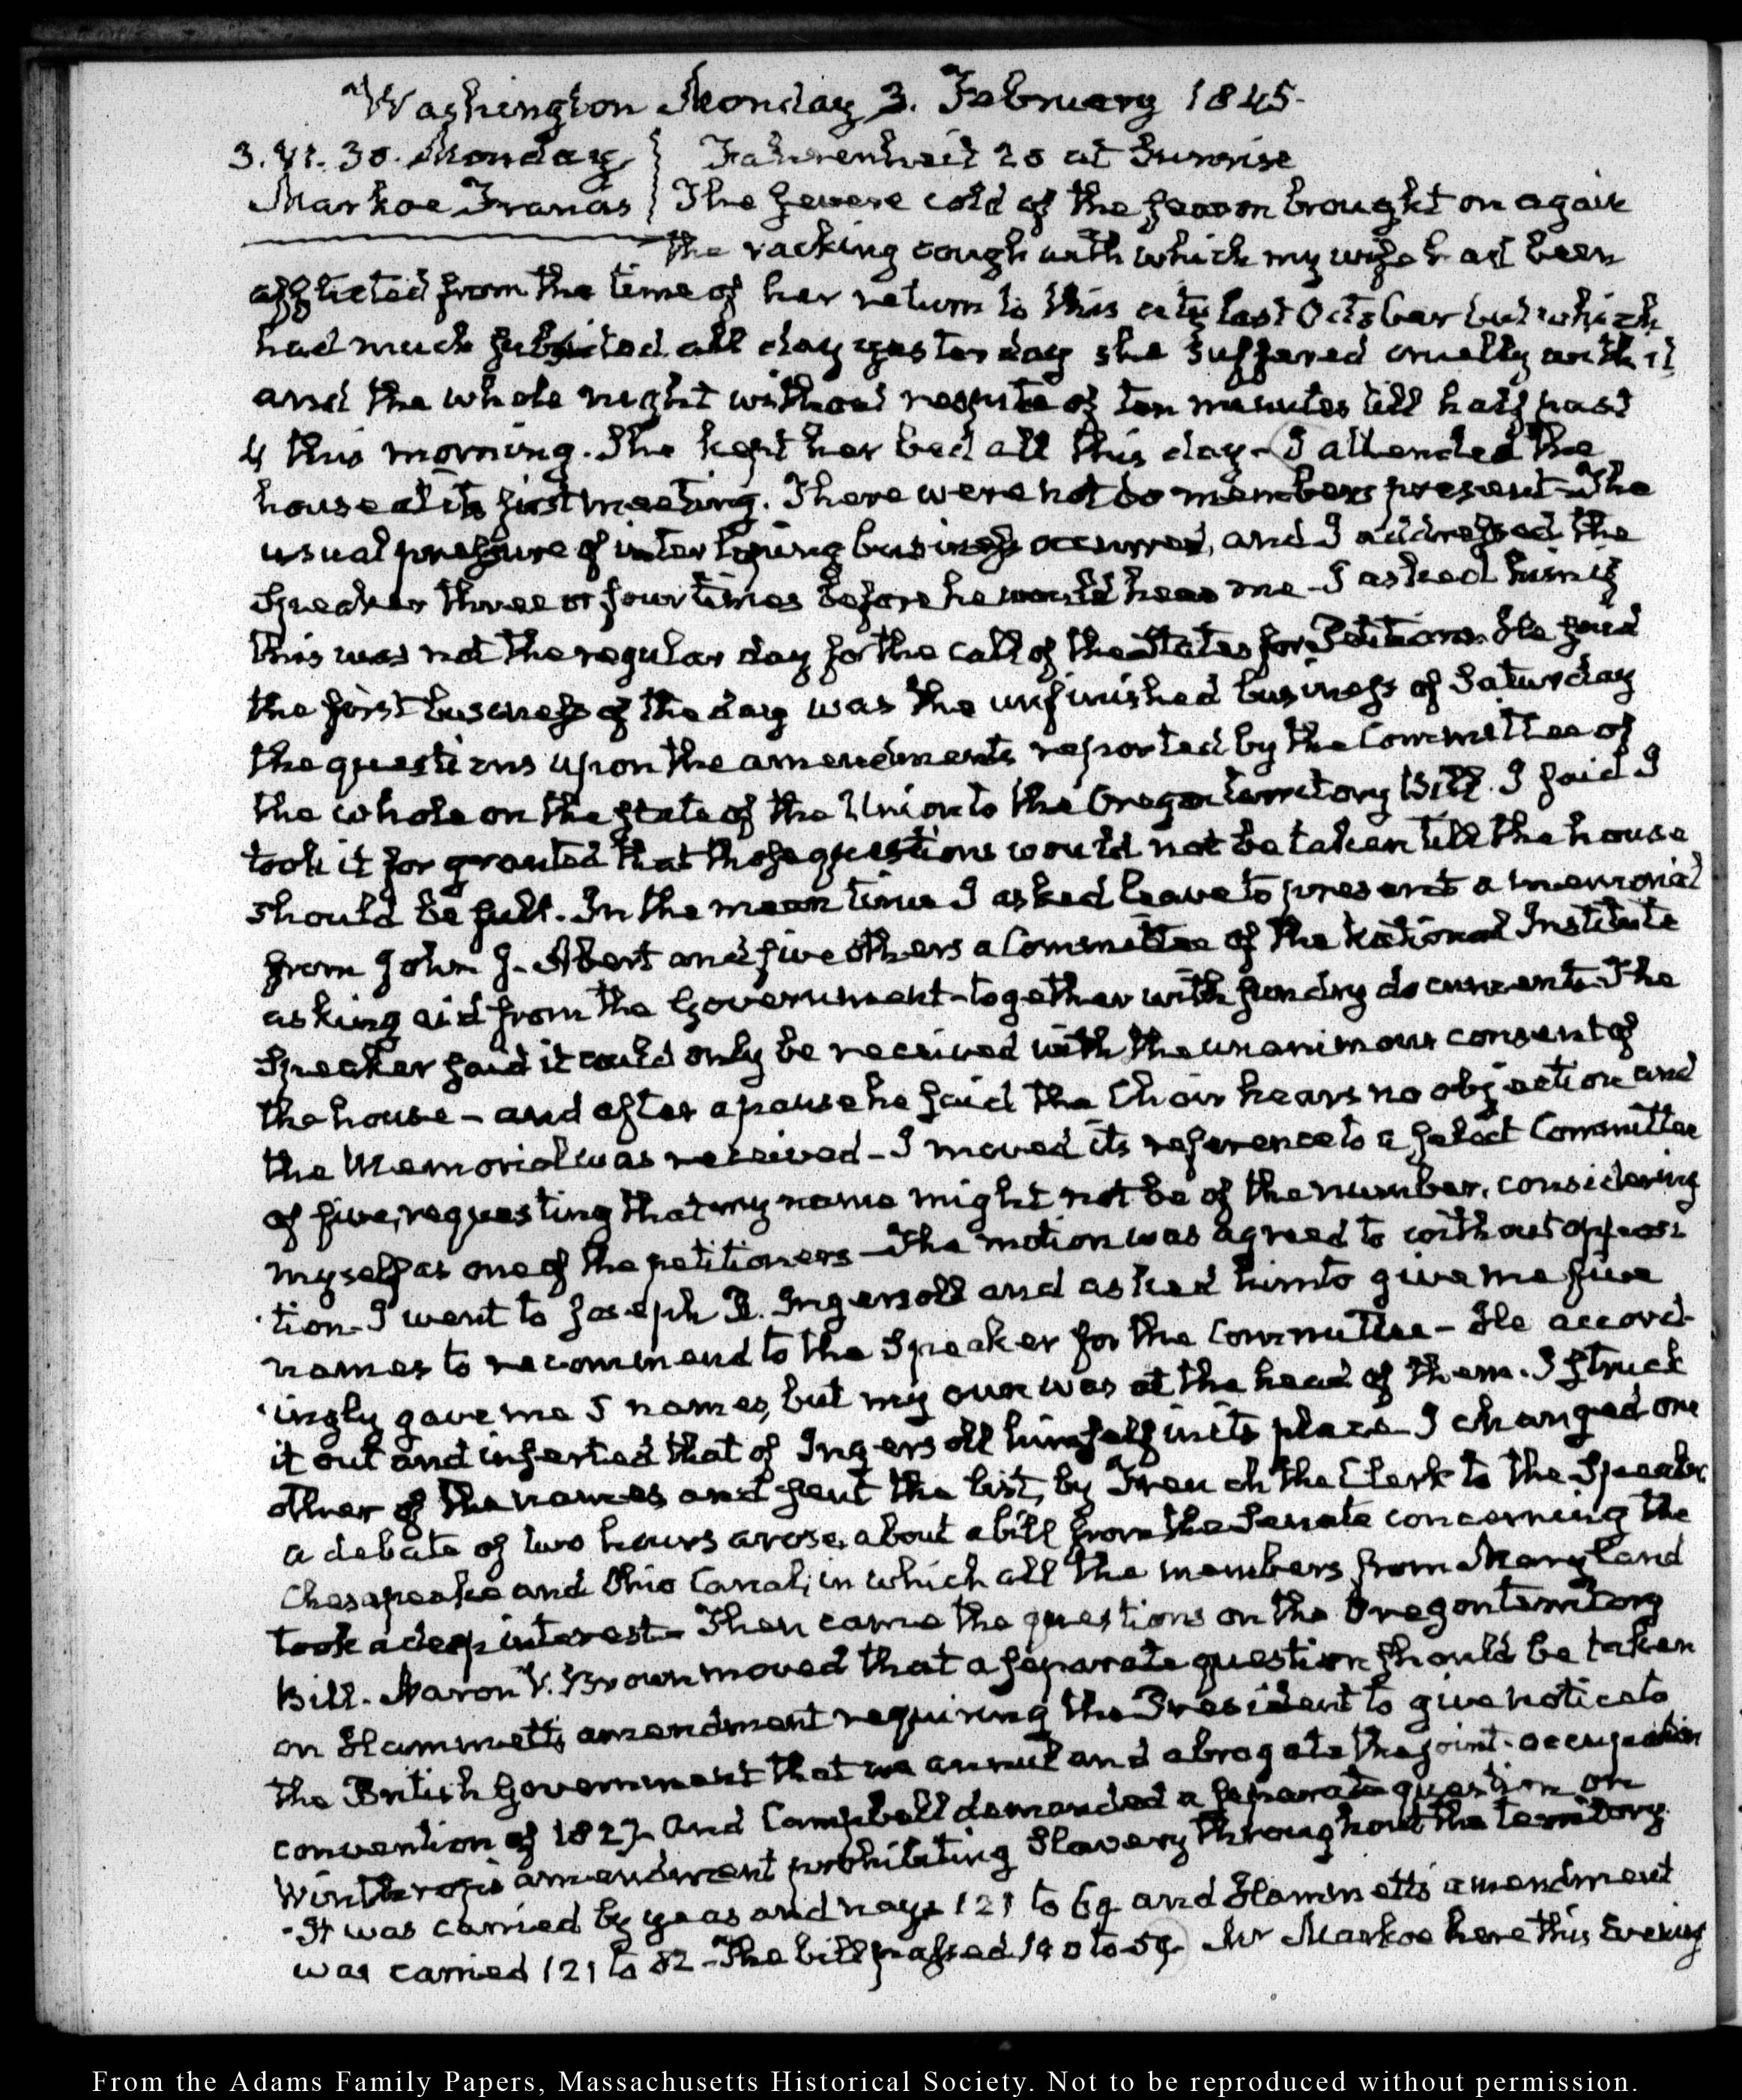 Washington Monday 3. February 1845.
3. VI. 30. Monday Fahrenheit 28 at Sunrise
Markoe Francis The severe cold of the season brought on again
the racking cough with which my wife had been
afflicted from the time of her return to this city last October but which
had much subsided. all day yesterday she suffered cruelly with it
and the whole night without respite of ten minutes till half past
4 this morning. She kept her bed all this day - I attended the
house at its first meeting. There were not 80 members present - The
usual pressure of interloping business occurred, and I addressed the
Speaker three or four times before he would hear me - I asked him if
this was not the regular day for the call of the States for Petitions. He said
the first business of the day was the unfinished business of Saturday
the questions upon the amendments reported by the Committee of
the whole on the state of the Union to the Oregon territory Bill. I said I
took it for granted that those questions would not be taken till the house
should be full. In the mean time I asked leave to present a memorial
from John J. Abert and five others a Committee of the National Institute
asking aid from the Government - together with sundry documents - The
Speaker said it could only be received with the unanimous consent of
the house - and after a pause he said the Chair hears no objection and
the Memorial was received - I moved its reference to a select Committee
of five, requesting that my name might not be of the number, considering
myself as one of the petitioners - The motion was agreed to without opposi
tion - I went to Joseph R. Ingersoll and asked him to give me five
names to recommend to the Speaker for the Committee - He accord-
ingly gave me 5 names, but my own was at the head of them. I struck
it out and inserted that of Ingersoll himself in its place - I changed one
other of the names and sent the list, by French the Clerk to the Speaker
a debate of two hours arose, about a bill from the Senate concerning the
Chesapeake and Ohio Canal, in which all the members from Maryland
took a deep interest - Then came the questions on the Oregon territory
Bill. Aaron V. Brown moved that a separate question should be taken
on Hammett's amendment requiring the President to give notice to
the British Government that we annul and abrogate the joint-occupation
convention of 1827 - and Campbell demanded a separate question on
Winthrop's amendment prohibiting Slavery throughout the territory
- It was carried by yeas and nays 121 to 69 and Hammett's amendment
was carried 121 to 82 - The bill passed 140 to 59 - Mr Markoe here this Evening
From the Adams Family Papers, Massachusetts Historical Society. Not to be reproduced without permission.